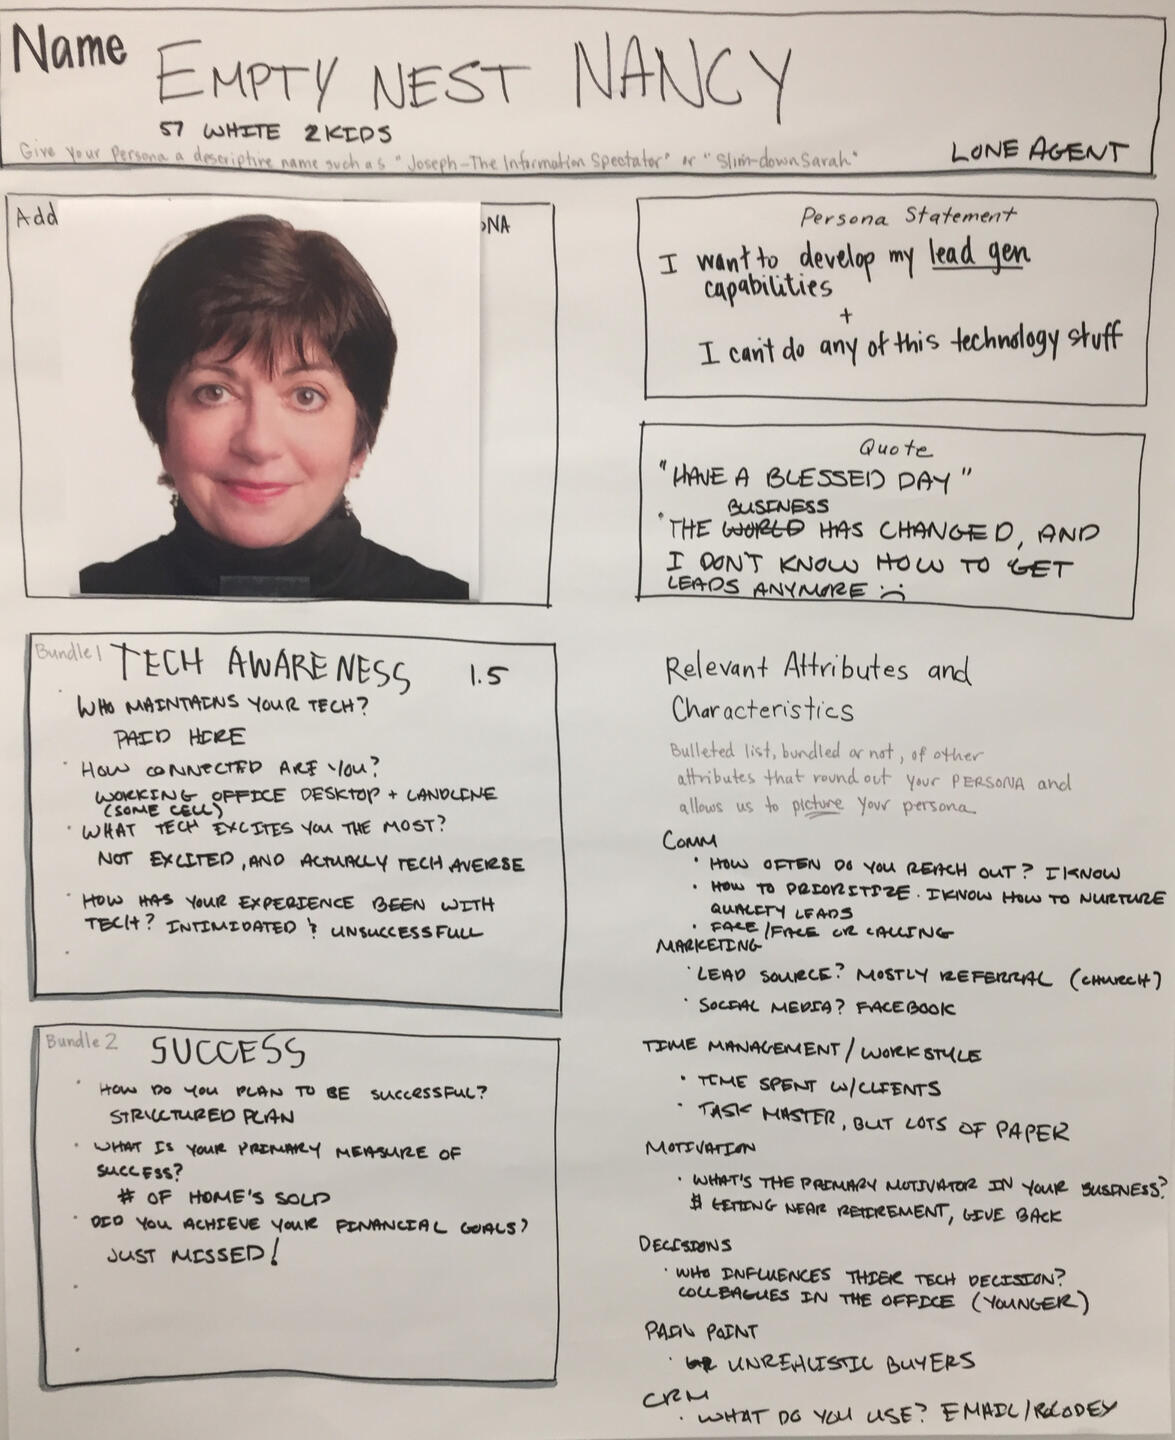 Name EMPTY NEST NANCY
57 WHITE 2 KIDS
Give your Persona a descriptive name such as "Joseph-The Information Spectator" or "Slim-down Sarah"
LONE AGENT
Add
NA
Persona Statement
I want to develop my lead gen
capabilities
+
I can't do any of this technology stuff
Quote
"HAVE A BLESSED DAY"
BUSINESS
"THE WORLD HAS CHANGED, AND
I DON'T KNOW HOW TO GET
LEADS ANYMORE :(
Bundle 1 TECH AWARENESS 1.5
· WHO MAINTAINS YOUR TECH?
PAID HIRE
· HOW CONNECTED ARE YOU?
WORKING OFFICE DESKTOP + LANDLINE
(SOME CELL)
· WHAT TECH EXCITES YOU THE MOST?
NOT EXCITED, AND ACTUALLY TECH AVERSE
· HOW HAS YOUR EXPERIENCE BEEN WITH
TECH? INTIMIDATED & UNSUCCESSFULL
Bundle 2 SUCCESS
· HOW DO YOU PLAN TO BE SUCCESSFUL?
STRUCTURED PLAN
· WHAT IS YOUR PRIMARY MEASURE OF
SUCCESS?
# OF HOME'S SOLD
· DID YOU ACHIEVE YOUR FINANCIAL GOALS?
JUST MISSED!
Relevant Attributes and
Characteristics
Bulleted list, bundled or not, of other
attributes that round out your PERSONA and
allows us to picture your persona
COMM
· HOW OFTEN DO YOU REACH OUT? I KNOW
· HOW TO PRIORITIZE. I KNOW HOW TO NURTURE
QUALITY LEADS
· FACE/FACE OR CALLING
MARKETING
· LEAD SOURCE? MOSTLY REFERRAL (CHURCH)
· SOCIAL MEDIA? FACEBOOK
TIME MANAGEMENT/WORK STYLE
· TIME SPENT W/CLIENTS
· TASK MASTER, BUT LOTS OF PAPER
MOTIVATION
· WHAT'S THE PRIMARY MOTIVATOR IN YOUR BUSINESS?
$ GETING NEAR RETIREMENT, GIVE BACK
DECISIONS
· WHO INFLUENCES THIER TECH DECISION?
COLLEAGUES IN THE OFFICE (YOUNGER)
PAIN POINT
· UNREALISTIC BUYERS
CRM
· WHAT DO YOU USE? EMAIL/ROLODEX